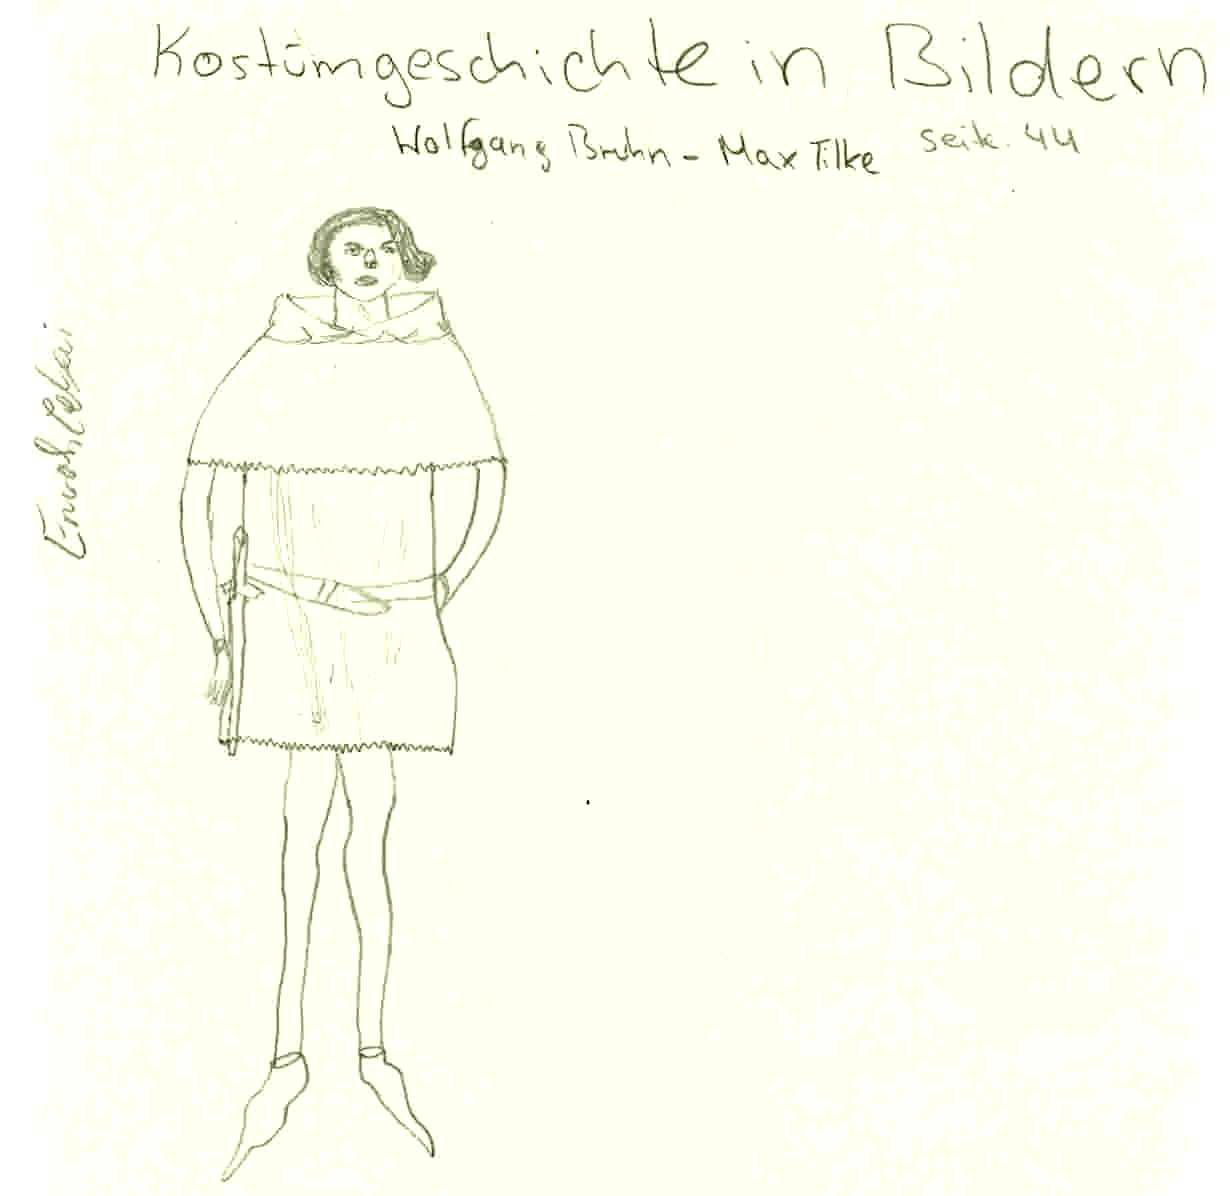 Kostümgeschichte in Bildern
Wolfgang Bruhn - Max Tilke Seite. 44